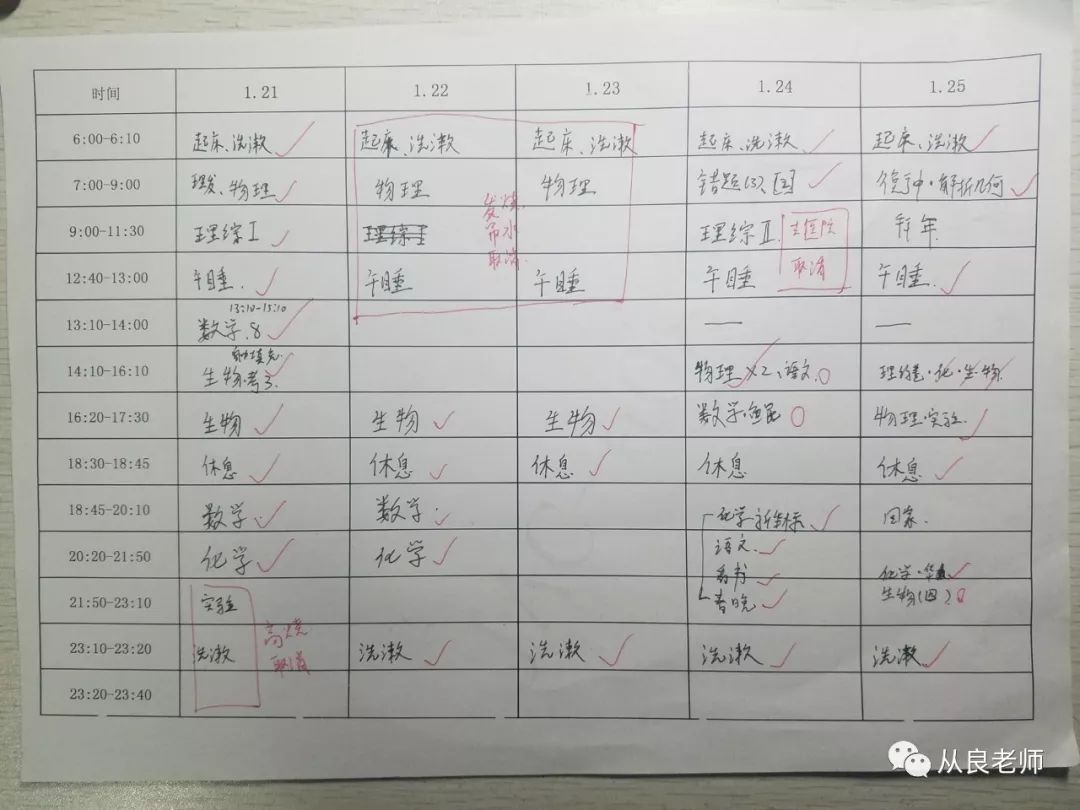 时间 1.21 1.22 1.23 1.24 1.25
6:00-6:10 起床、洗漱 起床、洗漱 起床、洗漱 起床、洗漱 起床、洗漱
7:00-9:00 理发、物理 物理 物理 错题 解析几何
发烧
9:00-11:30 理综I 理综I 吊水 理综II 去医院 拜年
取消 取消
12:40-13:00 午睡 午睡 午睡 午睡 午睡
13:10-15:10
13:10-14:00 数学.8 — —
14:10-16:10 生物 物理×2、语文 生物
16:20-17:30 生物 生物 生物 数学 物理·实验
18:30-18:45 休息 休息 休息 休息 休息
18:45-20:10 数学 数学 化学 回家.
20:20-21:50 化学 化学 语文
看书 化学
21:50-23:10 实验 春晚 生物(四)
高烧
23:10-23:20 洗漱 取消 洗漱 洗漱 洗漱 洗漱
23:20-23:40
从良老师